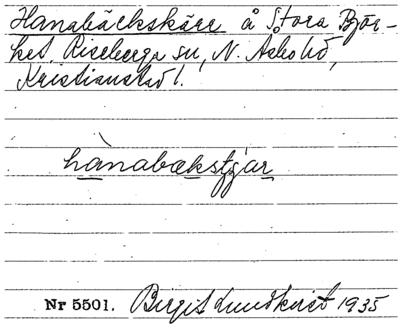 Hanabäckskärr å Stora Björ-
ket, Riseberga sn, N. Asbo hd,
Kristianstad l.
hànabækstjar
Nr 5501. Birgit Lundkvist 1935